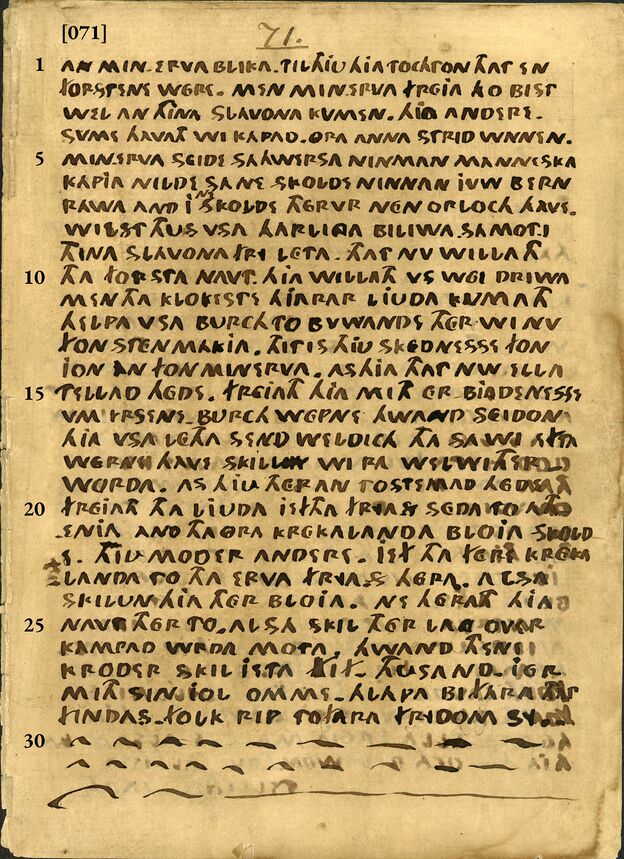 [071]
71.
1 AN MIN.ERVA BLIKA. TIL THIU HIA TOCHTON THAT EN
FORSTENE WERE. MEN MIN.ERVA FREIA HO BIST
WEL AN THINA SLAVONA KVMEN. HIA ANDERE.
SVME HAVATH WI KAPAD. ORA ANNA STRID WNNEN.
5 MIN.ERVA SEIDE SAHWERSA NINMAN MANNESKA
KAPIA NILDE SA NE SKOLDE NINMAN IVW BERN
RAWA AND I NE SKOLDE THERVR NEN ORLOCH HAVE.
WILST THUS VSA HARLINGA BILIWA SA MOT.I
THINA SLAVONA FRI LETA. THAT NV WILLATH
10 THA FORSTA NAVT. HIA WILLATH VS WEI DRIWA
MEN THA KLOKESTE HIARAR LIUDA KVMATH
HELPA VSA BURCH TO BVWANDE THER WI NV
FON STEN MAKIA. THIT IS THIU SKEDNESSE FON
ION AN FON MINERVA. AS HIA THAT NW ELLA
15 TELLAD HEDE. FREIATH HIA MITH ER BIADENESSE
VM IRSENE BURCH WEPNE HWAND SEIDON
HIA VSA LETHA SEND WELDICH THA SA WI EFTA
WERNE HAVE SKILLUN WI RA WEL WITHER
WORDA. AS HIU THERAN TO STEMAD HEDE
20 FREIATH THA LIUDA IEFTHA FRIAS SEDA TO ATH
ENIA AND THA ORA KREKALANDA BLOIA SKOLD
E. THIU MODER ANDERE. IEF THA FERE KREKA
LANDA TO THA ERVA FRIAS HERA. ALSA
SKILUN HIA THER BLOIA. NE HERATH HIA
25 NAVT THER TO. ALSA SKIL THER LANG OVER
KAMPAD WRDA MOTA. HWAND THENE
KRODER SKIL IEFTA FIF THUSAND IER
MITH SIN IOL OMME HLAPA BIFARA THAT
FINDAS FOLK RIP TO FARA FRIDOM SY.
30